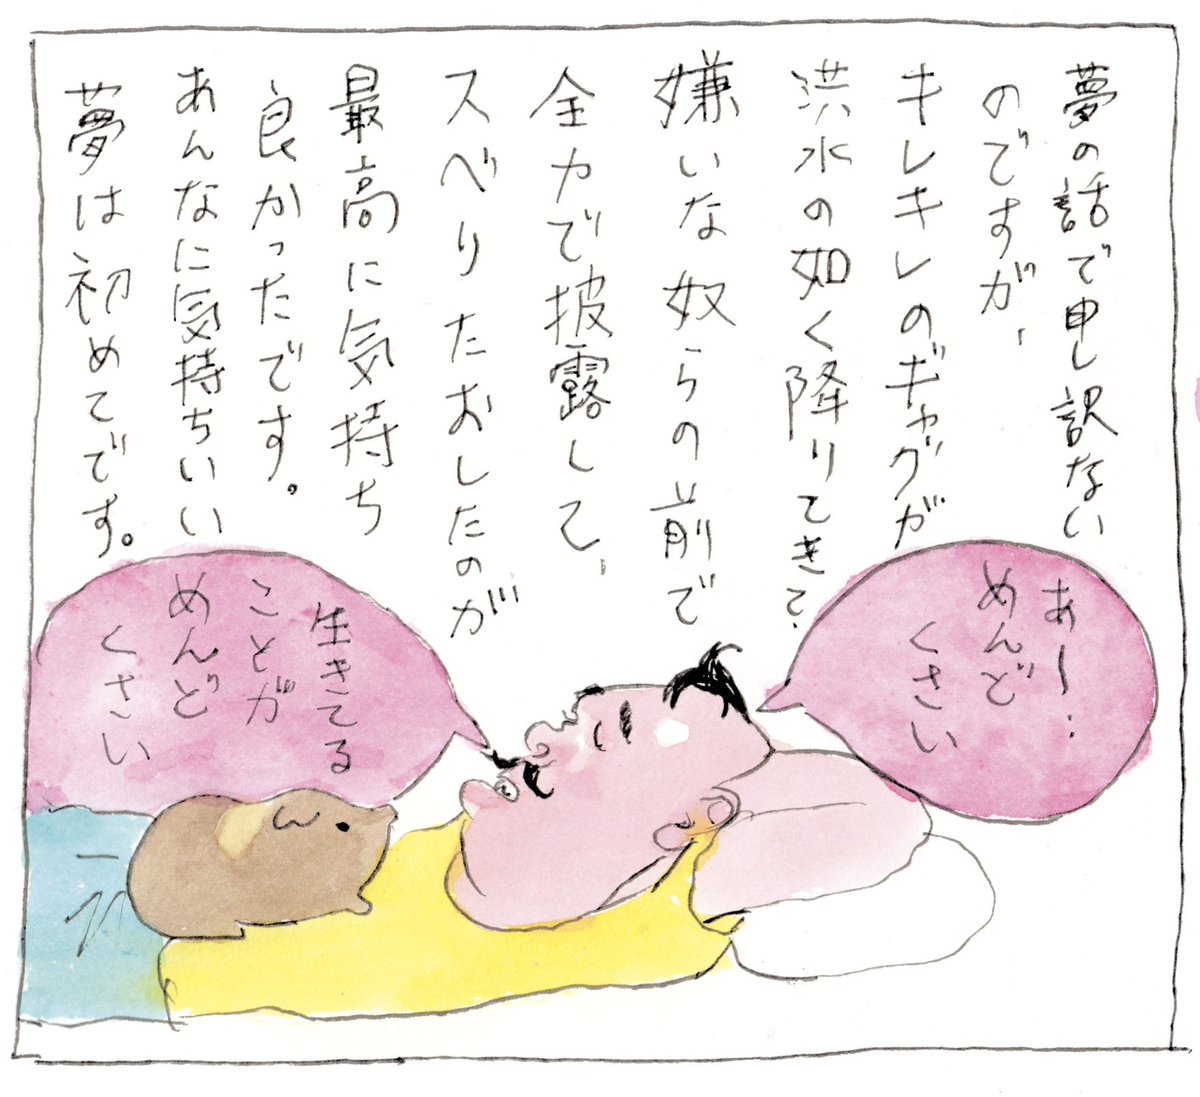 夢の話で申し訳ない
のですが、
キレキレのギャグが
洪水の如く降りてきて、
嫌いな奴らの前で
全力で披露して、
スベりたおしたのが
最高に気持ち
良かったです。
あんなに気持ちいい
夢は初めてです。
あ〜‥
めんど
くさい
生きてる
ことが
めんど
くさい